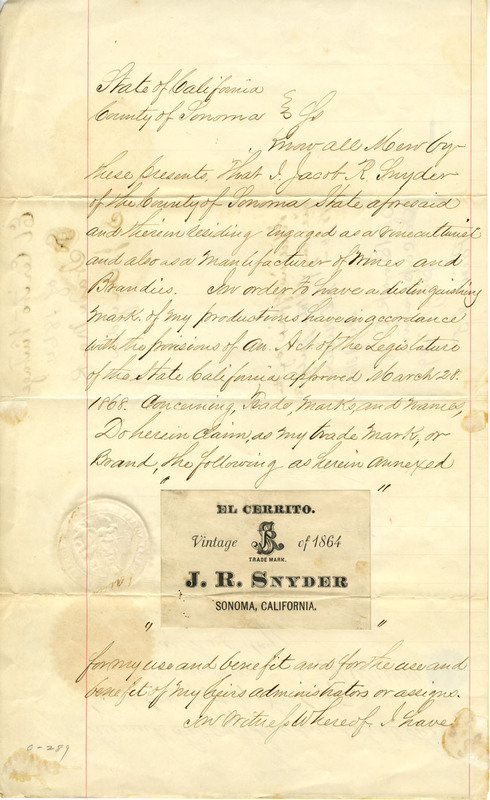 State of California
County of Sonoma } Ss
Know all Men by
these presents, That I, Jacob R. Snyder
of the County of Sonoma State aforesaid
and therein residing engaged as a vineculturist
and also as a Manufacturer of Wines and
Brandies. In order to have a distinguishing
Mark of my productions have in accordance
with the provisions of An Act of the Legislature
of the State California approved March 28.
1868. Concerning, Trade, Marks, and Names,
Do herein Claim, as my trade Mark, or
Brand, the following as herein annexed
" "
EL CERRITO.
Vintage JRS of 1864
TRADE MARK.
J. R. SNYDER
SONOMA, CALIFORNIA.
" "
for my use and benefit and for the use and
benefit of my heirs administrators or assigns.
In Witness Whereof. I have
0-289